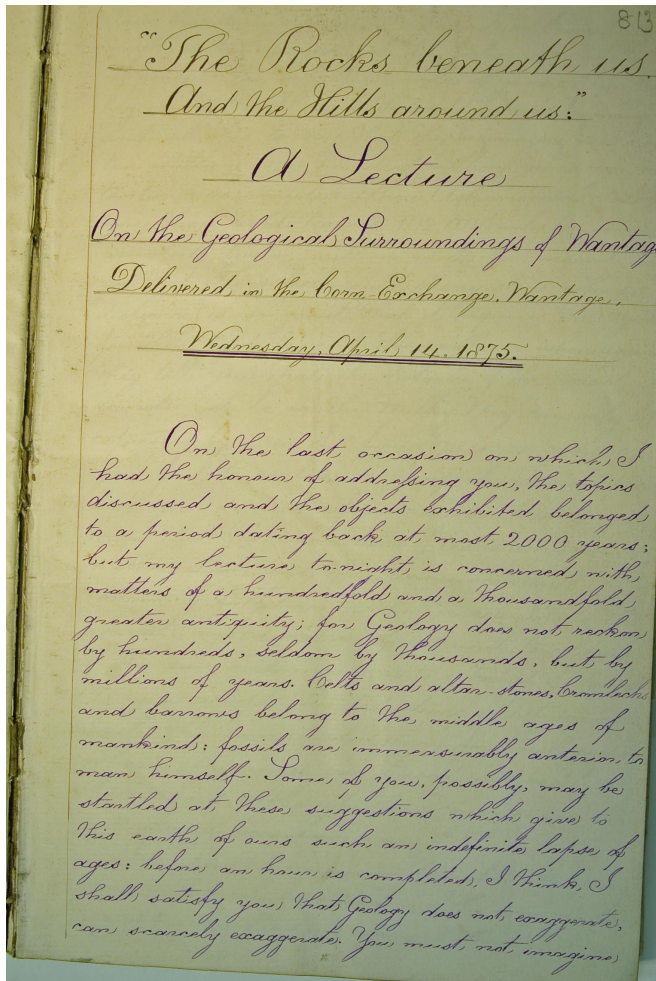 813
"The Rocks beneath us.
And the Hills around us:"
A Lecture
On the Geological Surroundings of Wantage
Delivered in the Corn-Exchange, Wantage.
Wednesday, April 14. 1875.
On the last occasion on which I
had the honour of addressing you, the topics
discussed and the objects exhibited belonged
to a period dating back at most 2000 years;
but my lecture to-night is concerned with
matters of a hundredfold and a thousandfold
greater antiquity; for Geology does not reckon
by hundreds, seldom by thousands, but by
millions of years. Celts and altar-stones, Cromlechs
and barrows belong to the middle ages of
mankind: fossils are immeasurably anterior to
man himself. Some of you, possibly, may be
startled at these suggestions which give to
this earth of ours such an indefinite lapse of
ages: before an hour is completed, I think, I
shall satisfy you that Geology does not exaggerate,
can scarcely exaggerate. You must not imagine